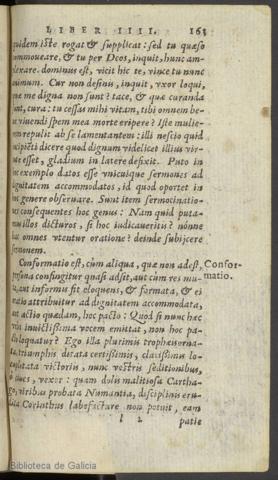 LIBER IIII. 163
quidem iste rogat & supplicat: sed tu quæso
commoueare, & tu per Deos, inquit, hunc am-
plexare. dominus est, vicit hic te, vince tu nunc
animum. Cur non definis, inquit, vxor loqui,
quæ me digna non sunt? tace, & quæ curanda
sunt, cura: tu cessas mihi vitam, tibi omnem be-
viuendi spem mea morte eripere? Iste mulie-
rem repulit ab se lamentantem: illi nescio quid
dicere quod dignum videlicet illius vir-
esset, gladium in latere defixit. Puto in
exemplo datos esse vnicuique sermones ad
dignitatem accommodatos, id quod oportet in
genere obseruare. Sunt item sermocinatio-
consequentes hoc genus: Nam quid puta-
mus illos dicturos, si hoc iudicaueritis? nonne
hac omnes vtentur oratione? deinde subijcere
sermonem.
Conformatio est, cùm aliqua, quæ non adest,
persona confingitur quasi adsit, aut cùm res mu-
aut informis fit eloquens, & formata, & ei
oratio attribuitur ad dignitatem accommodata,
aut actio quædam, hoc pacto: Quod si nunc hæc
inuictissima vocem emittat, non hoc pa-
loquatur? Ego illa plurimis trophæis orna-
ta, triumphis ditata certissimis, clarissimis lo-
cupletata victoriis, nunc vestris seditionibus,
ô ciues, vexor: quam dolis malitiosa Cartha-
go, viribus probata Numantia, disciplinis eru-
dita Corinthus labefactare non potuit, eam
l 2 patie
Confor-
matio.
Biblioteca de Galicia